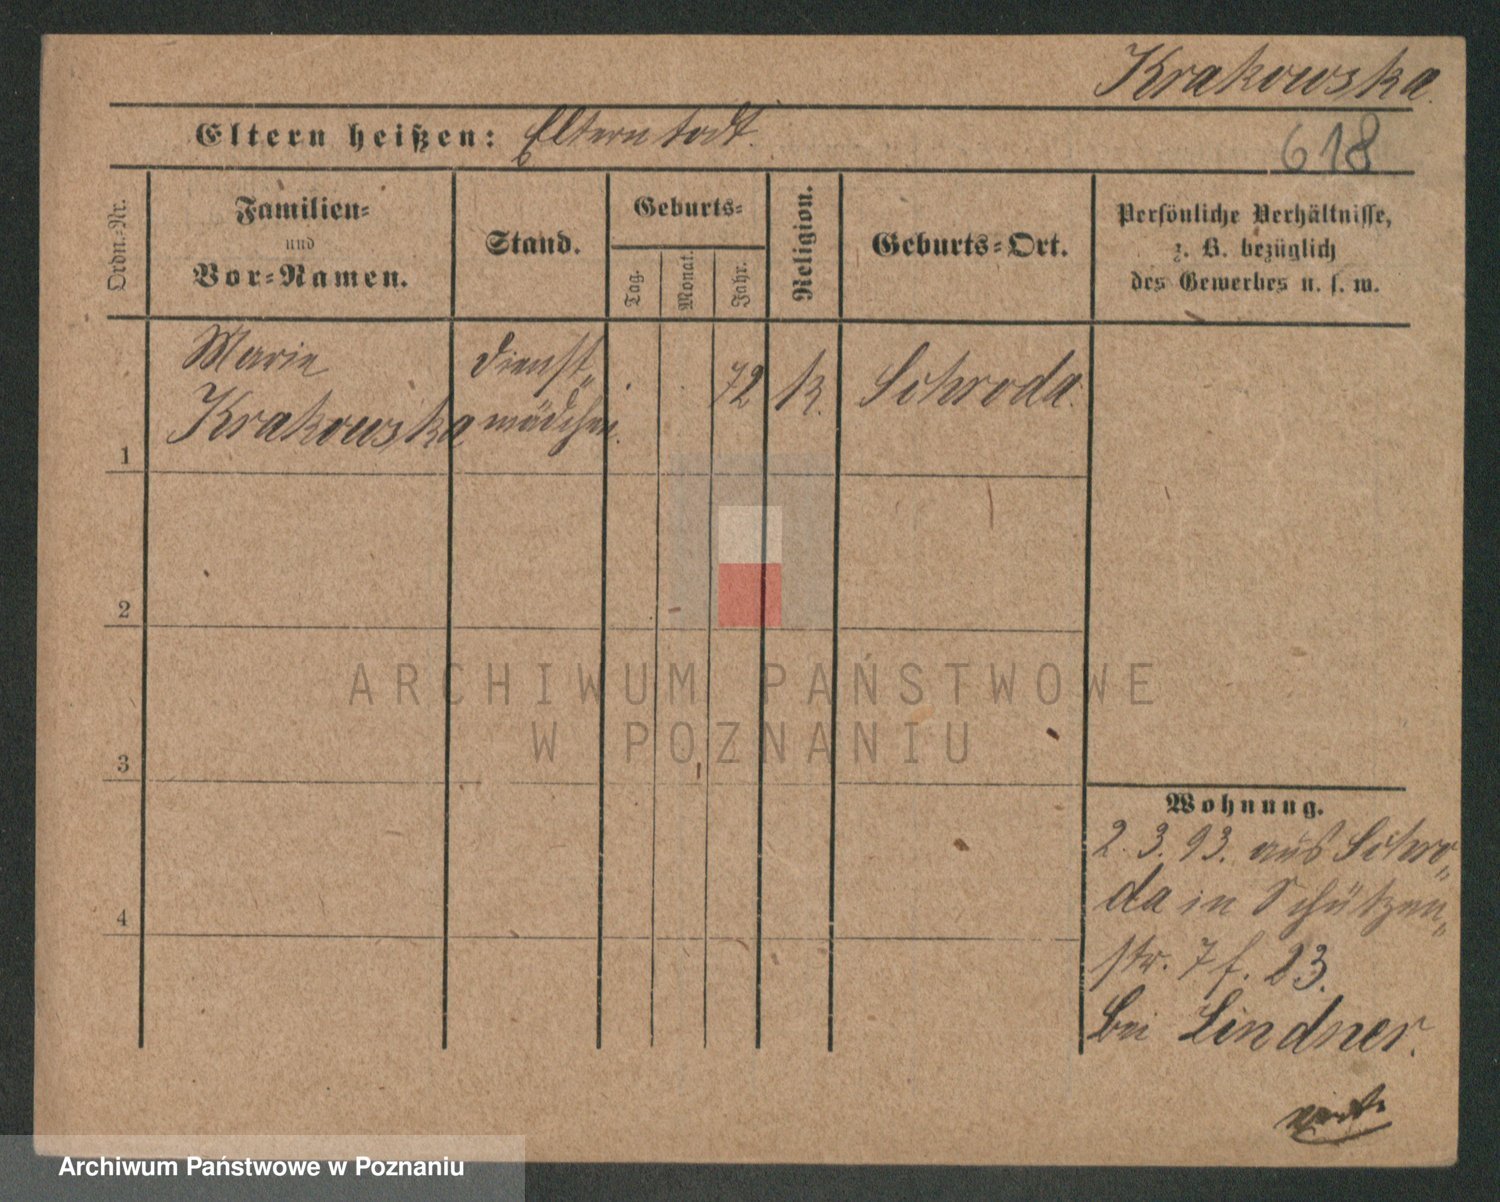 Krakowska
Eltern heißen: Eltern todt.
618
Ordn.-Nr.
Familien-
und
Vor-Namen.
Stand.
Geburts-
Tag.
Monat.
Jahr.
Religion.
Geburts-Ort.
Persönliche Verhältnisse,
z. B. bezüglich
des Gewerbes u. s. w.
1
Marie
Krakowska
Dienst-
mädchen.
72
k.
Schroda.
2
3
4
ARCHIWUM PAŃSTWOWE
W POZNANIU
Wohnung.
2.3.93. aus Schro-
da in Schützen-
str. 7 f. 23.
bei Lindner.
Archiwum Państwowe w Poznaniu